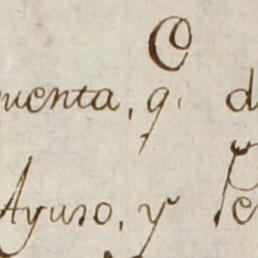 C
cuenta, q. d
Ayuso, y Pe